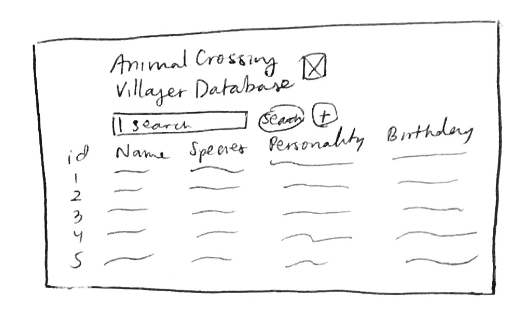 Animal Crossing
Villager Database
search Search +
id Name Species Personality Birthday
1
2
3
4
5